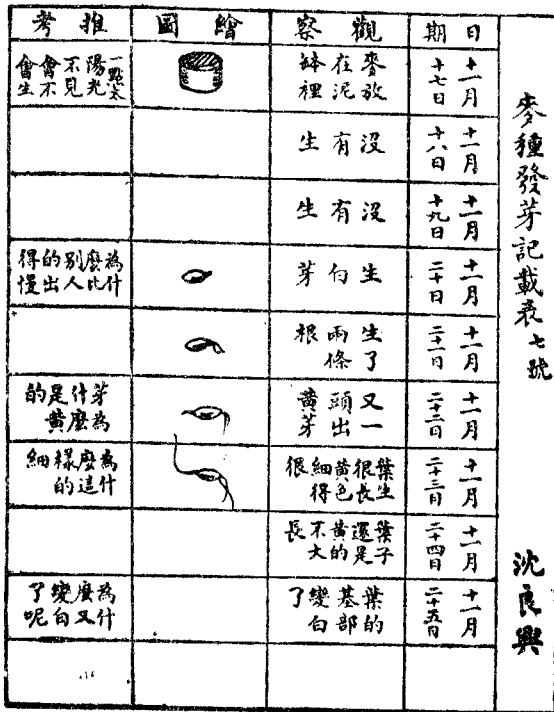 麥種發芽記載表 七號
沈良興
日期
觀察
繪圖
推考
十一月
十七日
麥放
在泥
缽裡
一點太
陽光
不見
會不
會生
十一月
十八日
沒有生
十一月
十九日
沒有生
十一月
二十日
生白芽
為什
麼比
別人
的出
得慢
十一月
二十一日
生了
兩條
根
十一月
二十二日
又一
頭出
黃芽
芽為
什麼
是黃
的
十一月
二十三日
葉生
很長
黃色
細得
很
為什
麼這
樣的
細
十一月
二十四日
葉子
還是
黃的
不大
長
十一月
二十五日
葉的
基部
變白
了
為什
麼又
變白
了呢